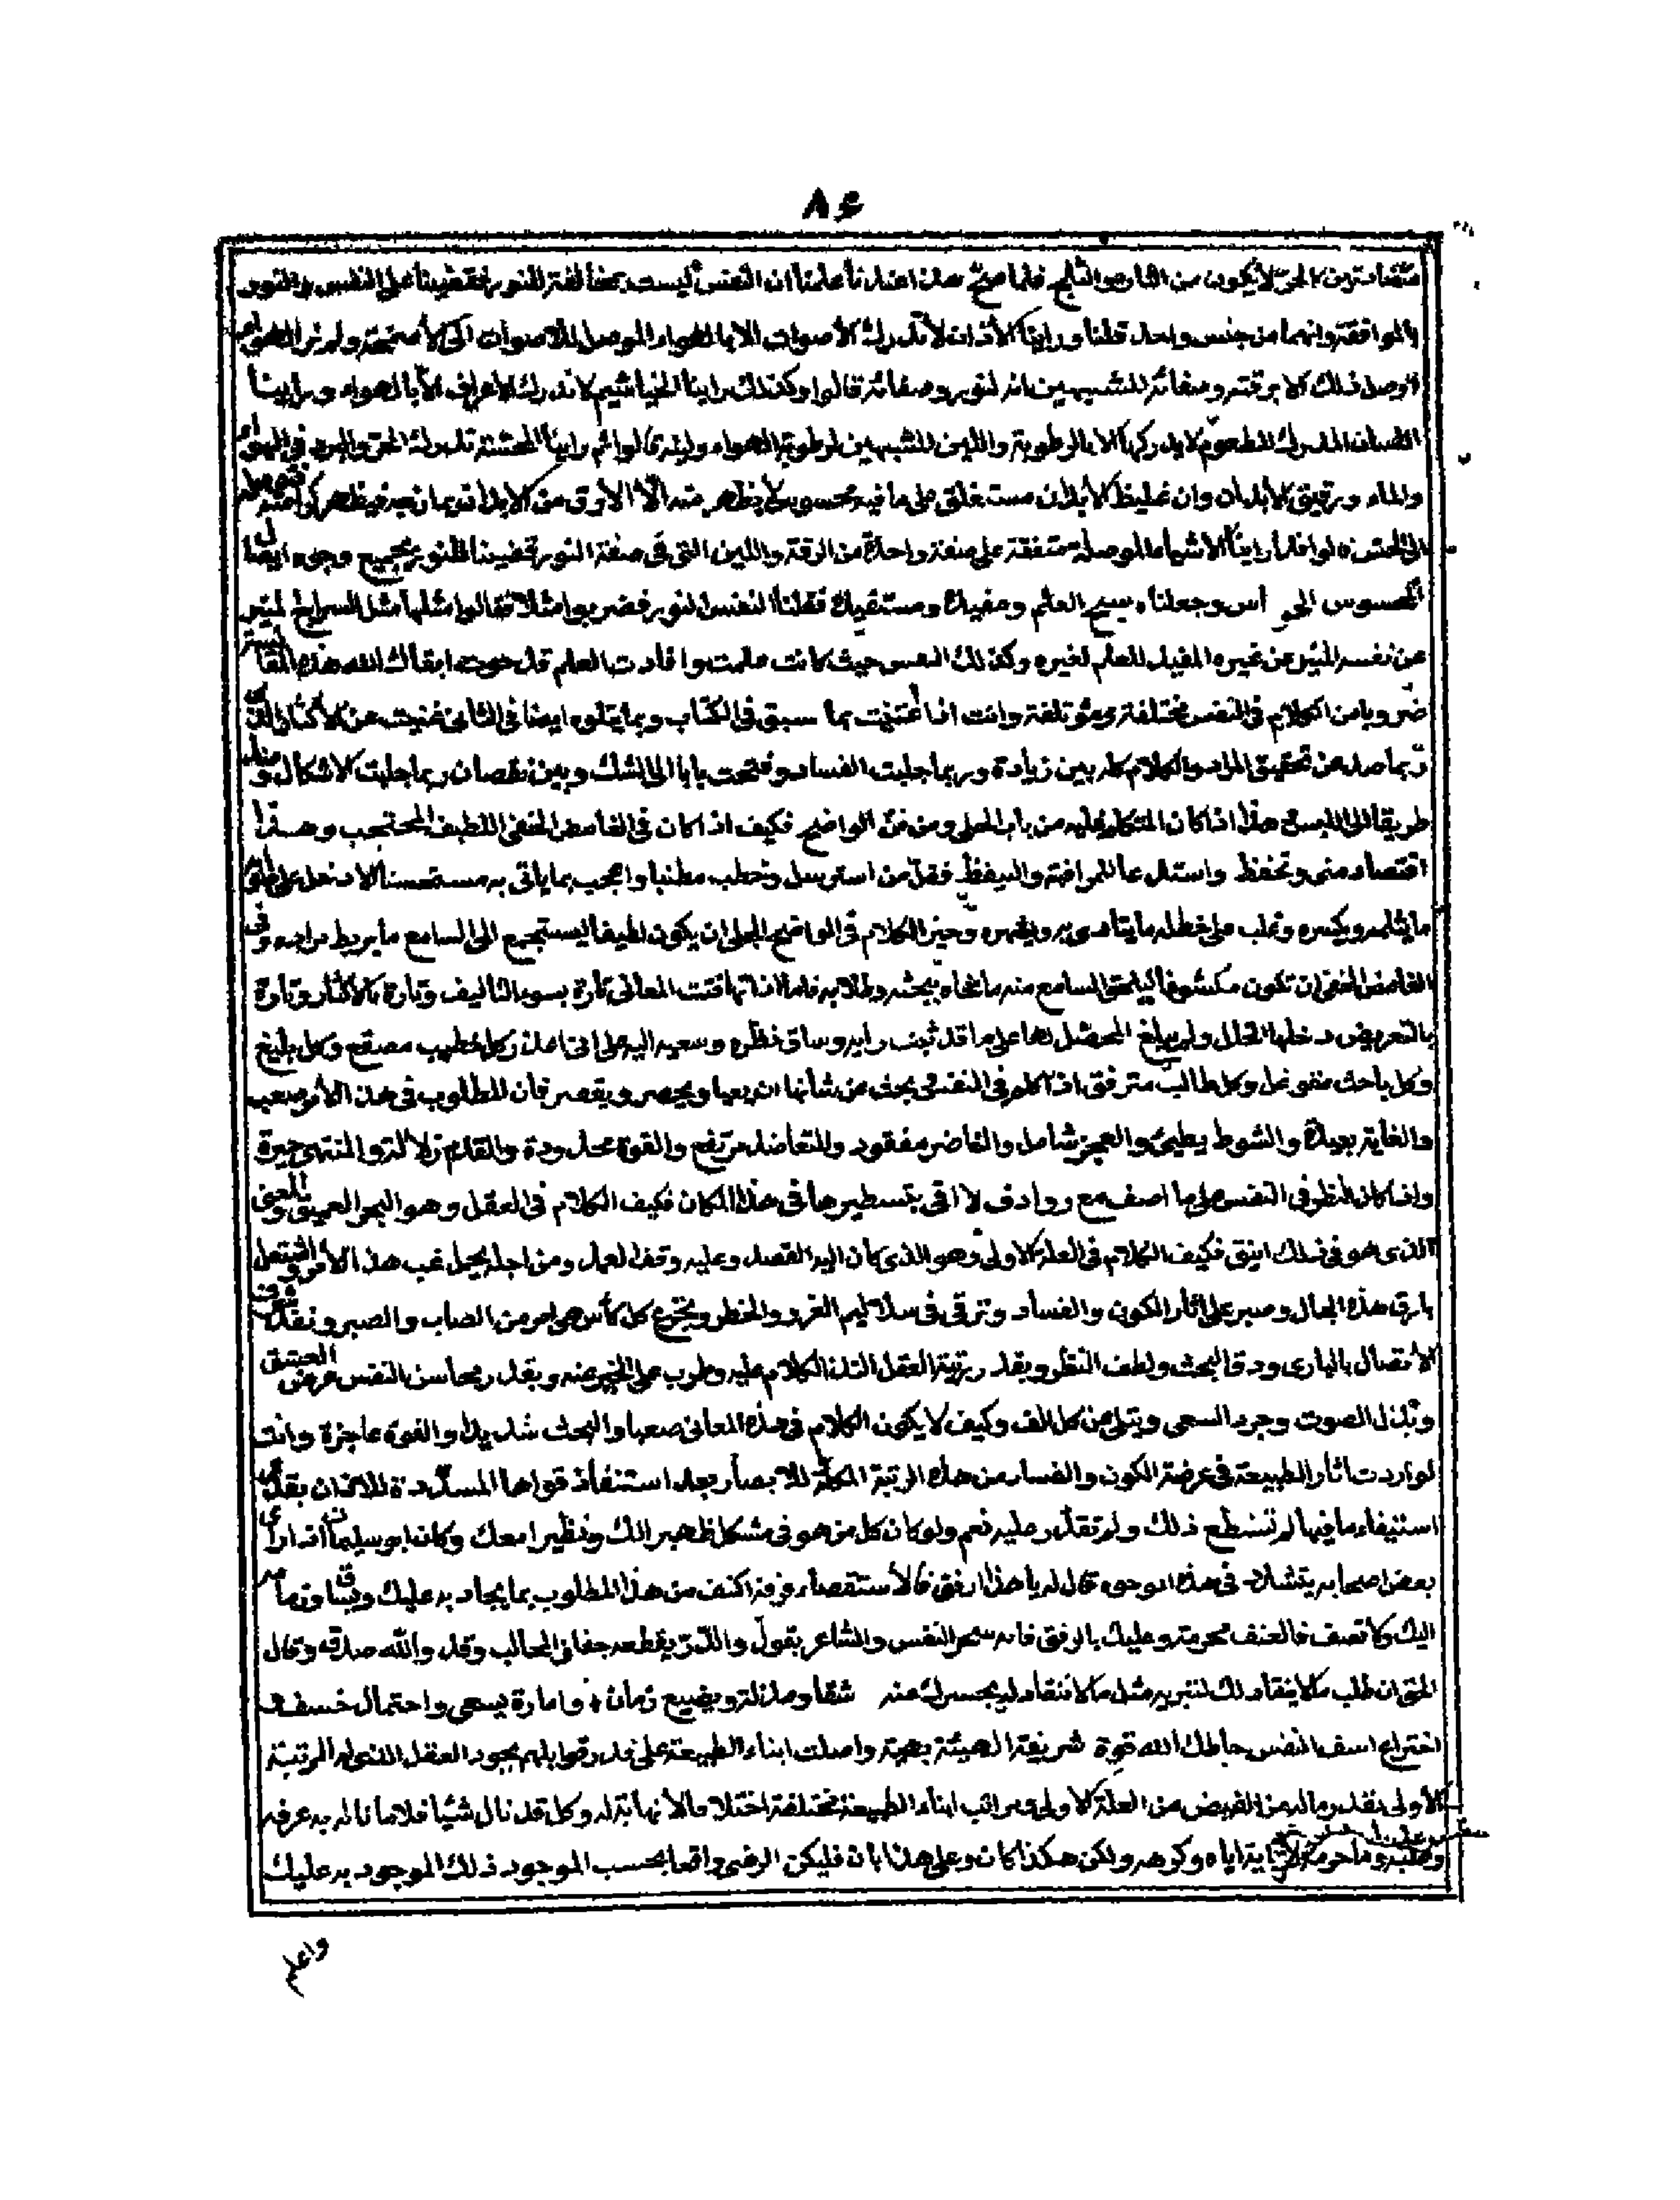 ٨٤
متضادتين كالحر لا يكون من النار والثلج فلما صح هذا عندنا علمنا ان النفس ليست بمخالفة للنور فقضينا على النفس والنور
بالموافقة وانهما من جنس واحد قلنا وراينا الأذان لا تدرك الأصوات الا بالهواء الموصل للاصوات الى الأصمخة ولم نر الهواء
اوصل ذلك الا برقته وصفائه المشبهين لنور وصفائه قالوا وكذلك راينا الخياشيم لا تدرك الاعراف الا بالهواء وراينا
اللسان المدرك للطعوم لا يدركها الا بالرطوبة واللين المشبهين لرطوبة الهواء ولينه قالوا ثم راينا المحسة تدرك الحر والبرد في الهواء
والماء ورقيق الأبدان وان غليظ الأبدان مستغلق على ما فيه محسوس لا يظهر منه الا الأرق من الابدان
قالوا فلما راينا الاشياء الموصلة متفقة على صفة واحدة من الرقة واللين التي في صفة النور قضينا للنور بجميع وجوه ايصال
المحسوس الى اس وجعلناه سبح العلم ومفيدا ومستفيدا فقلنا النفس لنور فضربوا مثلا فقالوا مثلها مثل السراج المنير
عن نفسه المنير عن غيره المفيد للعلم لغيره وكذلك النفس حيث كانت علمت وافادت العلم قد حوت ابقاك الله هذه المقابسة
ضروبا من الكلام في النفس مختلفة ومؤتلفة وانت اذا اعتنيت بما سبق في الكتاب وبما يتلوه ايضا في الثاني غنيت عن الأكثار الذي
ربما صد عن تحقيق المراد والكلام كله بين زيادة وربما جلبت الفساد وفتحت بابا الى الشك وبين نقصان ربما جلبت الاشكال و
طريقا الى اللبس هذا اذا كان المتكلم عليه من باب الجلي ومن فن الواضح فكيف اذا كان في الغامض الخفي اللطيف المحتجب وهذا
اقتصاد مني وتحفظ واستدعا للمرافهة والتيقظ فقل من استرسل وخطب مطنبا واعجب بما ياتي به مستحسنا الا دخل على
ما يثلمه ويكسره وغلب على خطله ما يتأدى به ويقهره وخير الكلام في الواضح الجلي ان يكون لطيفا ليستجمع الى السامع ما يربط مراده وفي
الغامض الخفي ان تكون مكشوفا ليلحق السامع منه ما نخاه ببحثه وطلابه فاما اذا تهافتت المعاني تارة بسوء التأليف وتارة بالاكثار وتارة
بالتعريض دخلها الخلل ولم يبلغ المحصل لها على ما قد ثبت رايه وساق نظره وسعيه اليه على انى اعذر كل خطيب مصقع وكل بليغ
وكل باحث وكل طالب مترفق اذا تكلم في النفس بحث من شأنها ان يعيا ويحصر ويقصر فان المطلوب في هذا الأمر صعب
والغاية بعيدة والشوط بطيئ والعجز شامل والناصر مفقود والمتعاضد مرتفع والقوة محدودة والقدم زلالة والمنتهى حيرة
واذا كان النظر في النفس على ما اصف مع روادف لا افي بتسطيرها في هذا المكان فكيف الكلام في العقل وهو البحر العميق
الذي هو في ذلك انيق فكيف الكلام في العلة الاولى وهو الذي كان اليه القصد وعليه وقف العمل ومن اجله يحمل غب هذا الأمر واشتعل
بارق هذه الحال وصبر على اثار الكون والفساد وترقى في سلاليم الغرر والخطر وتجرع كل كأس هي امر من الصاب والصبر
الاتصال بالباري ودق البحث ولطف النظر وبقدر رتبة العقل التذ الكلام عليه وطرب على الخبر عنه وبقدر محاسن النفس عرض العشق
وتبذل الصوت وجرد السعي وتبلى من كل الف وكيف لا يكون الكلام في هذه المعاني صعبا والبحث شديدا والقوة عاجزة وانت
لو اردت اثار الطبيعة في عرصة الكون والفساد من هذه الرتبة للابصار بعد استنفاذ قواها المسددة للاذان بقدر
استيفاء ما فيها لم تستطع ذلك ولم تقدر عليه نعم ولو كان كل من هو في مشكا ظهيرا لك ونظيرا معك وكان ابو سليمان اذا راى
بعض اصحابه يتشدد في هذه الوجوه قال له يا هذا ارفق فالأستقصاء فرقة اكتف من هذا المطلوب بما يجاد به عليك
اليك ولا تعنف فالعنف تحرمة وعليك بالرفق فانه سحر النفس والشاعر يقول والدر يقطعه جفاء الحالب وقد والله صدق وقال
المتى ان طلب ما لا ينقاد لك شقا ومذلة وتضييع زمان وامارة يسعى واحتمال خسف و
اختراع اسف النفس حاطك الله قوة شريفة الهيئة بهية واصلت ابناء الطبيعة على قدر قوابلهم بجود العقل الذي له المرتبة
الأولى بقدر ماله من الفيض من العلة الاولى ومراتب ابناء الطبيعة مختلفة اختلافا لا نهاية له وكل قد نال شيئا فلما ناله به عرفه
اياه وكرهه ولكن هكذا كان وعلى هذا بان فليكن الرضى واقعا بحسب الموجود فذلك الموجود به عليك
واعلم